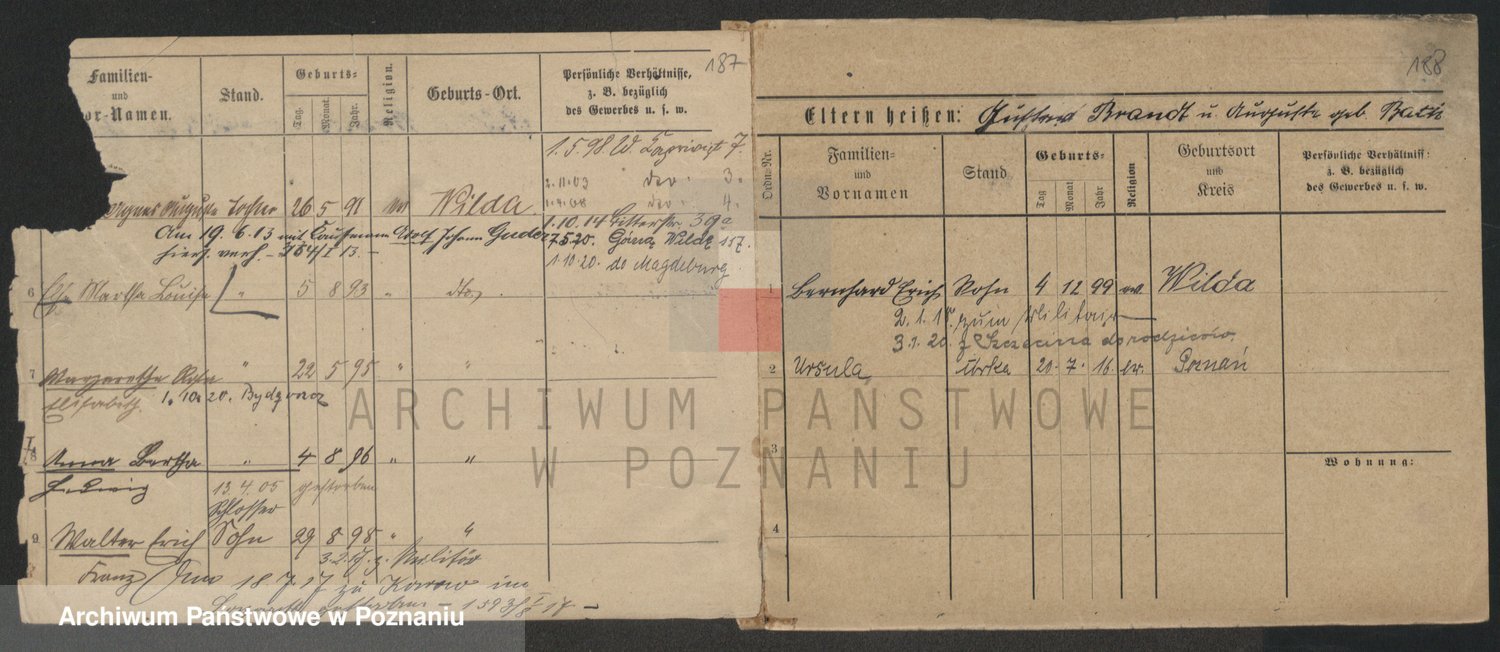 187
Familien-
und
or-Namen.
Stand.
Geburts-
Tag.
Monat.
Jahr.
Religion.
Geburts-Ort.
Persönliche Verhältnisse,
z. B. bezüglich
des Gewerbes u. s. w.
1.5.98. W. 7.
2.11.03 3.
4.
Agnes Auguste Tochter 26 5 91 Wilda
1.10.14 39a
Am 19. 6. 13 mit Kaufmann Adolf Johann
7.5.20. Górna Wilda 157.
hiers. verh. - 354/I 13. -
1.10.20. do Magdeburg.
6 Martha Louise " 5 8 93 " dto
7 Margarethe Rosa " 22 5 95 " "
Elisabeth. 1. 10. 20. Bydgoszcz
8 Anna Bertha " 4 8 96 " "
Hedwig 13.4.05 gestorben
Schlosser
9 Walter Erich Sohn 29 8 98 " "
3.2.17. z. Militär
Franz 18.7.17 zu im
gestorben - 1593/ 17 -
188
Eltern heißen: Gustav Brandt u. Auguste geb.
Ordn.-Nr.
Familien-
und
Vornamen
Stand
Geburts-
Tag
Monat
Jahr
Religion
Geburtsort
und
Kreis
Persönliche Verhältniss
z. B. bezüglich
des Gewerbes u. s. w.
1 Bernhard Erich Sohn 4 12 99 ev. Wilda
2.1.1 zum Militair
3.1.20. z Szczecina do rodziców
2 Ursula córka 20. 7. 16 ev. Poznań
3
Wohnung:
4
ARCHIWUM PAŃSTWOWE
W POZNANIU
Archiwum Państwowe w Poznaniu